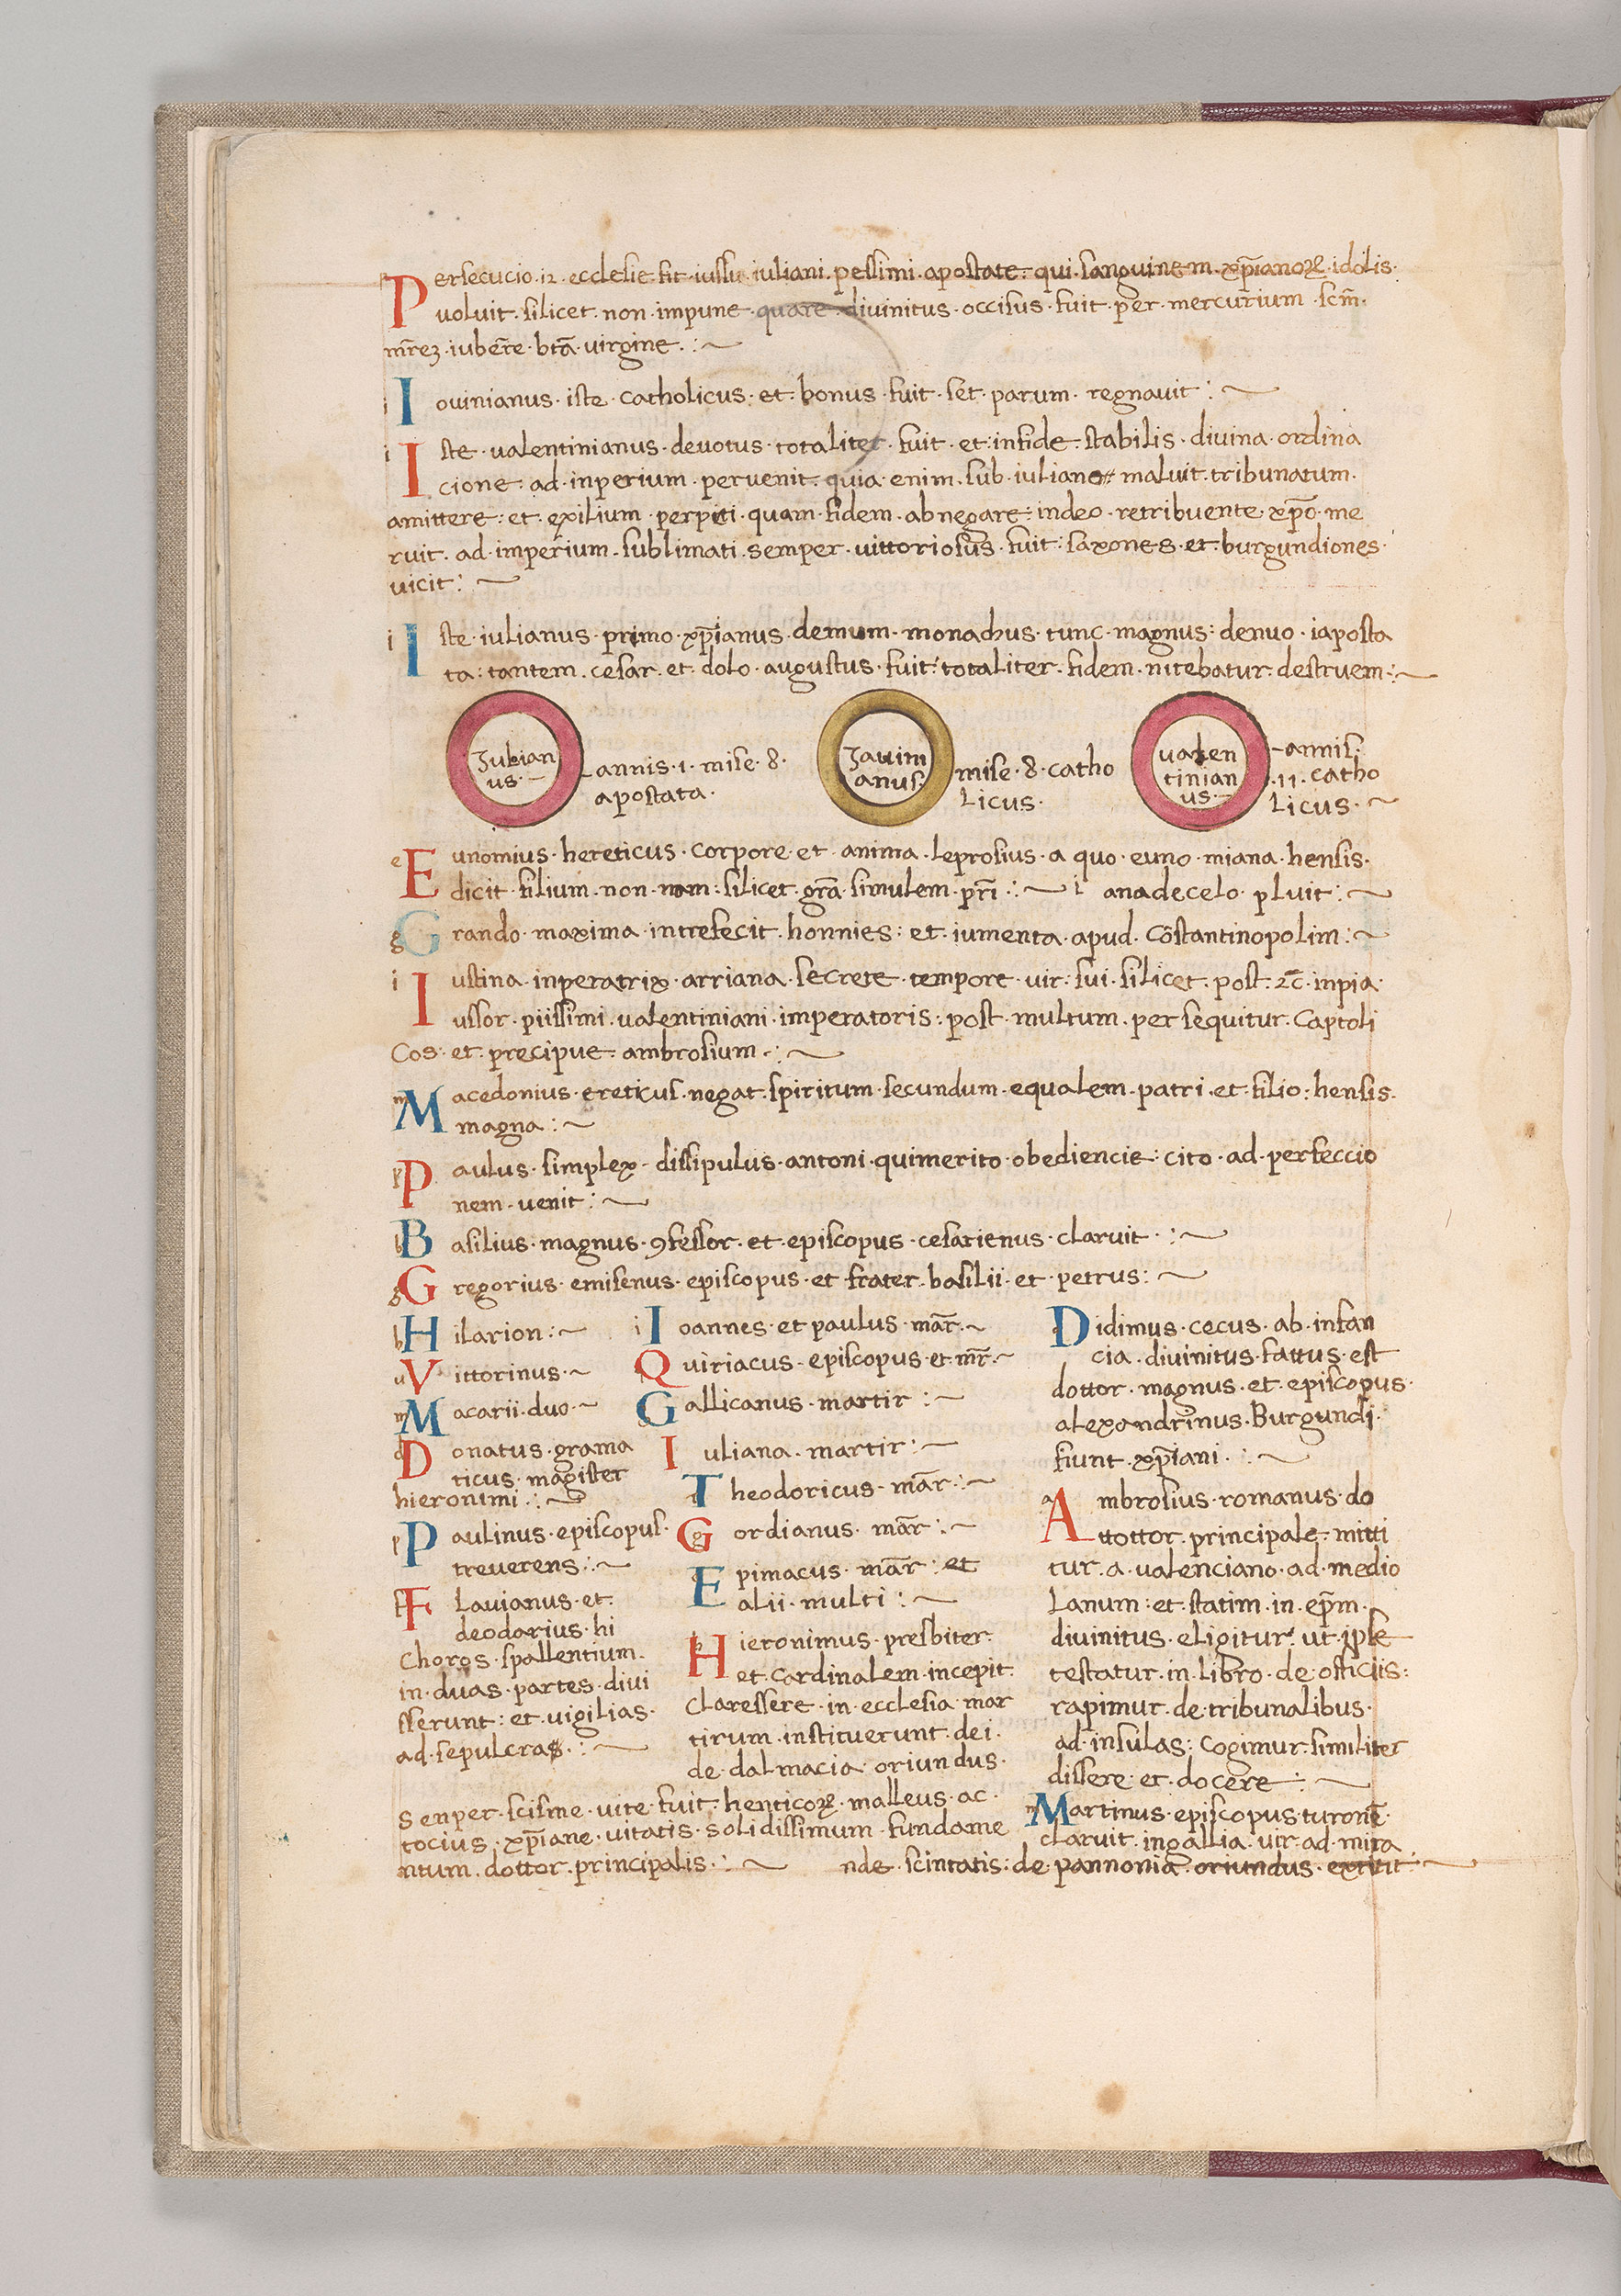 Persecucio · 12 · ecclesie fit · iussu iuliani · pessimi · apostate · qui · sanguinem · xp̄ianoꝝ · idolis ·
voluit · silicet · non · impune · quare · divinitus · occisus · fuit · per · mercurium · sc̄m ·
mr̄eʒ · iuber̄e · btā · virgine · :~
Iovinianus · iste · catholicus · et · bonus · fuit · set · parum · regnavit : ~
Iste · valentinianus · devotus · totaliter · fuit · et · infide · stabilis · divina · ordina
cione · ad · inperium · pervenit · quia · enim · sub · iuliano · maluit · tribunatum ·
amittere : et · exilium · perpeti · quam · fidem · abnegare : indeo · retribuente · xp̄o · me
ruit · ad · imperium · sublimati · semper · vittoriosus · fuit : saxones · et · burgundiones ·
vicit : ~
Iste · iulianus · primo · xp̄ianus · demum · monachus · tunc · magnus : denuo · iaposta
ta : tantem · cesar · et · dolo · augustus · fuit : totaliter · fidem · nitebatur · destruem · :~
Julian
us · ~
annis · 1 · mise · 8 ·
apostata ·
Jauim
anus ·
mise · 8 · catho
licus ·
valen
tinian
us · ~
annis ·
· 11 · catho
licus · ~
Eunomius · hereticus · corpore · et · anima · leprosius · a quo · euno · miana · hensis ·
dicit · filium · non · nom : silicet · grā · simulem · pr̄i · : ~ l anadecelo · pluit : ~
Grando · maxima · intrefecit · honnies : et · iumenta · apud · cōstantinopolim : ~
Iustina · inperatrix · arriana · secrete · tempore · vir : sui · silicet · post · 2c̄ · inpia ·
ussor · piissimi · valentiniani · imperatoris : post · multum · persequitur · captoli
cos : et · precipue · ambrosium · : ~
Macedonius · ereticus · negat · spiritum · secundum · equalem · patri · et · filio : hensis ·
magna : ~
Paulus · simplex · dissipulus · antoni · quimerito · obediencie : cito · ad · perfeccio
nem · venit : ~
Basilius · magnus · ꝯfessor · et · episcopus · cesarienus · claruit · : ~
Gregorius · emisenus · episcopus · et frater · basilii · et · petrus : ~
Hilarion : ~
Vittorinus · ~
Macarii · duo · ~
Donatus · grama
ticus · magister
hieronimi · : ~
Paulinus · episcopus ·
treverens : ~
Flavianus · et ·
deodorius · hi
choros · spallentium ·
in · duas · partes · divi
sserunt : et · vigilias ·
ad · sepulcras · : ~
Ioannes · et paulus · mār · ~
Quiriacus · episcopus · et · mr̄ · ~
Gallicanus · martir : ~
Iuliana · martir : ~
Theodoricus · mār : ~
Gordianus · mār : ~
Epimacus · mār : et
alii · multi : ~
Hieronimus · presbiter ·
et · cardinalem · incepit ·
claressere · in · ecclesia · mar
tirum · instituerunt · dei ·
de · dalmacia · oriundus ·
Senper · scisme · vite · fuit · henticoꝝ · malleus · ac ·
tocius · xp̄iane · vitatis · solidissimum · fundame
ntum · dottor · principalis · : ~
Didimus · cecus · ab · infan
cia · divinitus · fattus · est
dottor · magnus · et · episcopus ·
alexandrinus · Burgundi ·
fiunt · xp̄iani · : ~
Ambrosius · romanus · do
ttottor · principale · mitti
tur · a · valenciano · ad · medio
lanum : et · statim · in · ep̄m ·
divinitus · eligitur : ut · ipse
testatur · in · libro · de · officiis :
rapimur · de · tribunalibus ·
ad · insulas : cogimur · similiter
dissere · et · docere : ~
Martinus · episcopus · turonē ·
claruit · ingallia · vir · ad · mira
nde · scintatis : de · pannonia · oriundus · extitit · ~